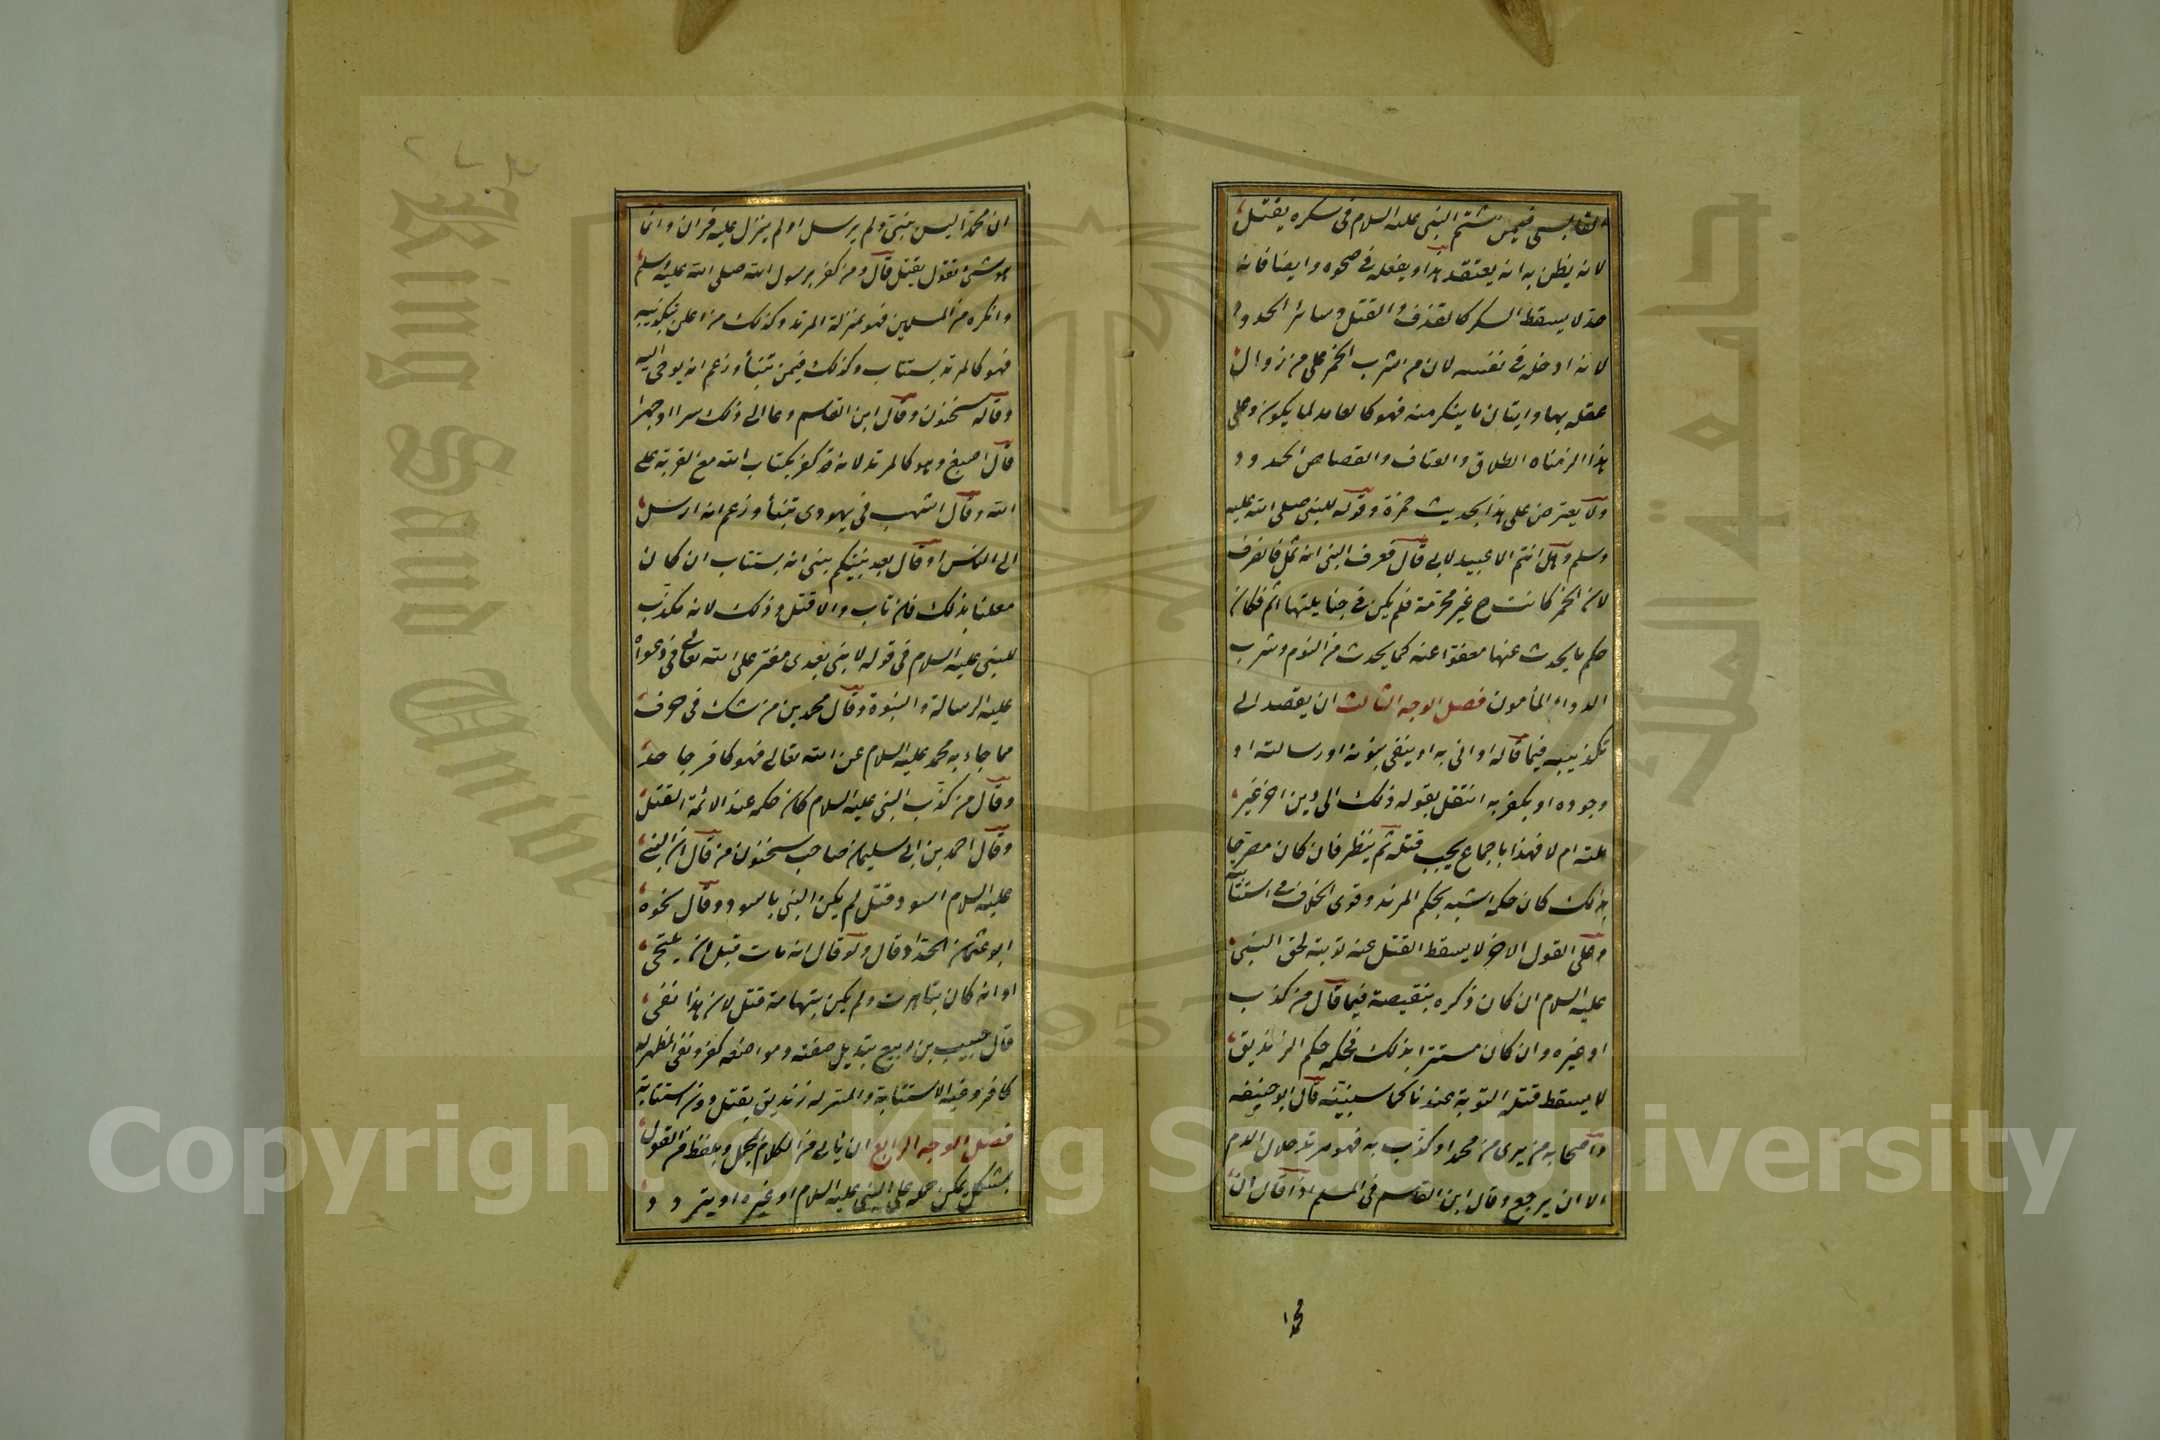 القابسى فيمن شتم النبى عليه السلام فى سكره يقتل
لانه يظن به انه يعتقد هذا ويفعله فى صحوه وايضا فانه
حد لا يسقط السكر كالقذف والقتل وسائر الحدود
لانه ادخله فى نفسه لان من شرب الخمر على من زوال
عقله بها واتيان ما ينكر منه فهو كالعامد لما يكون وعلى
هذا الزمناه الطلاق والعتاق والقصاص الحدود
ولا يعترض على هذا بحديث حمزة وقوله للنبى صلى الله عليه
وسلم وهل انتم الا عبيد لابى قال فعرف النبى انه ثمل فانصرف
لان الخمر كانت ح غير محرمة فلم يكن فى جنايتها اثم فكان
حكم ما يحدث عنها معفوا عنه كما يحدث من النوم وشرب
الدواء المأمون فصل الوجه الثالث ان يقصد الى
تكذيبه فيما قاله او اتى به او ينفى نبوته او رسالته او
وجوده او يكفر به انتقل بقوله ذلك الى دين اخر غير
ملته ام لا فهذا باجماع يجب قتله ثم ينظر فان كان مصرحا
بذلك كان حكمه اشبه بحكم المرتد وقوى الخلاف فى استتابته
وعلى القول الاخر لا يسقط القتل عنه توبته لحق النبى
عليه السلام ان كان ذكره بنقيصة فيما قال من كذب
او غيره وان كان مستترا بذلك فحكمه حكم الزنديق
لا يسقط قتله التوبة عندنا كما سنبينه قال ابو حنيفه
واصحابه من برى من محمد او كذب به فهو مرتد حلال الدم
الا ان يرجع وقال ابن القاسم فى المسلم اذا قال ان
محمدا
ان محمدا ليس بنبى ولم يرسل او لم ينزل عليه قران وانما
هو شئ تقول يقتل قال ومن كفر برسول الله صلى الله عليه وسلم
وانكره من المسلمين فهو بمنزلة المرتد وكذلك من اعلن بتكذيبه
فهو كالمرتد يستتاب وكذلك فيمن تنبأ وزعم انه يوحى اليه
وقاله سحنون وقال ابن القاسم دعا الى ذلك سرا او جهرا
قال اصبغ وهو كالمرتد لانه قد كفر بكتاب الله مع الفرية على
الله وقال اشهب فى يهودى تنبأ وزعم انه ارسل
الى الناس او قال بعد نبيكم نبى انه يستتاب ان كان
معلنا بذلك فان تاب والا قتل وذلك لانه مكذب
للنبى عليه السلام فى قوله لا نبى بعدى مفتر على الله تعالى فى دعواه
عليه الرسالة والنبوة وقال محمد بن من شك فى حرف
مما جاء به محمد عليه السلام عن الله تعالى فهو كافر جاحد
وقال من كذب النبى عليه السلام كان حكمه عند الائمة القتل
وقال احمد بن ابى سليمان صاحب سحنون من قال ان النبى
عليه السلام اسود قتل لم يكن النبى باسود وقال نحوه
ابو عثمان الحداد قال ولو قال انه مات قبل ان يلتحى
او انه كان بتاهرت ولم يكن بتهامة قتل لان هذا نفى
قال حبيب بن ربيع تبديل صفته ومواضعه كفر ونفى المظهر له
كافر وفيه الاستتابة والمسر له زنديق يقتل دون استتابة
فصل الوجه الرابع ان ياتى من الكلام بمجمل ويلفظ من القول
بمشكل يمكن حمله على النبى عليه السلام او غيره او يتردد
King Saud University
جامعة الملك سعود
1957
Copyright © King Saud University